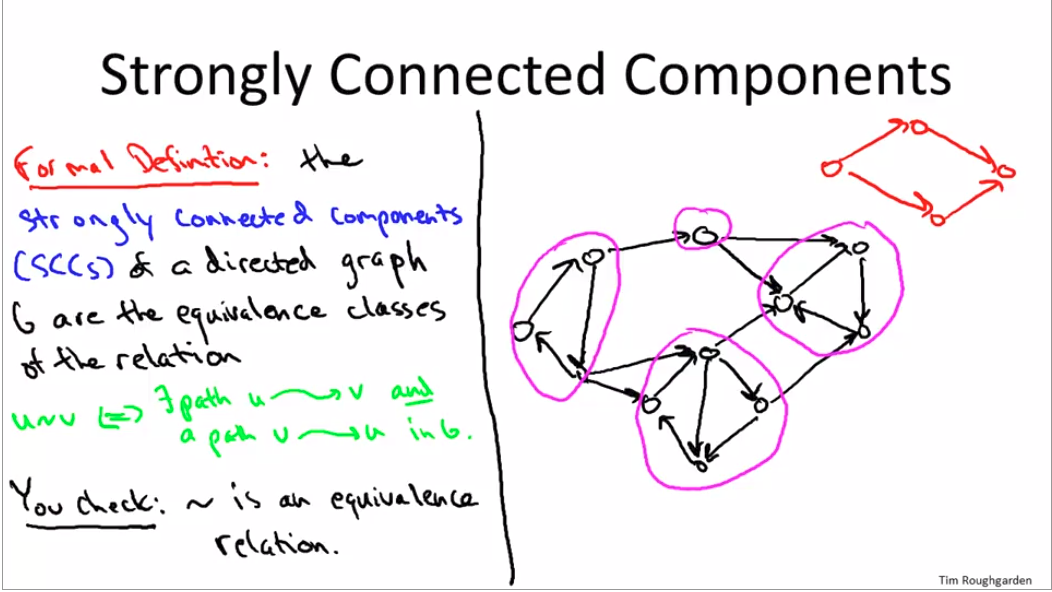 Strongly Connected Components
Formal Definition: the
strongly connected components
(SCCs) of a directed graph
G are the equivalence classes
of the relation
u~v <=> ∃ path u⇝v and
a path v⇝u in G.
You check: ~ is an equivalence
relation.
Tim Roughgarden